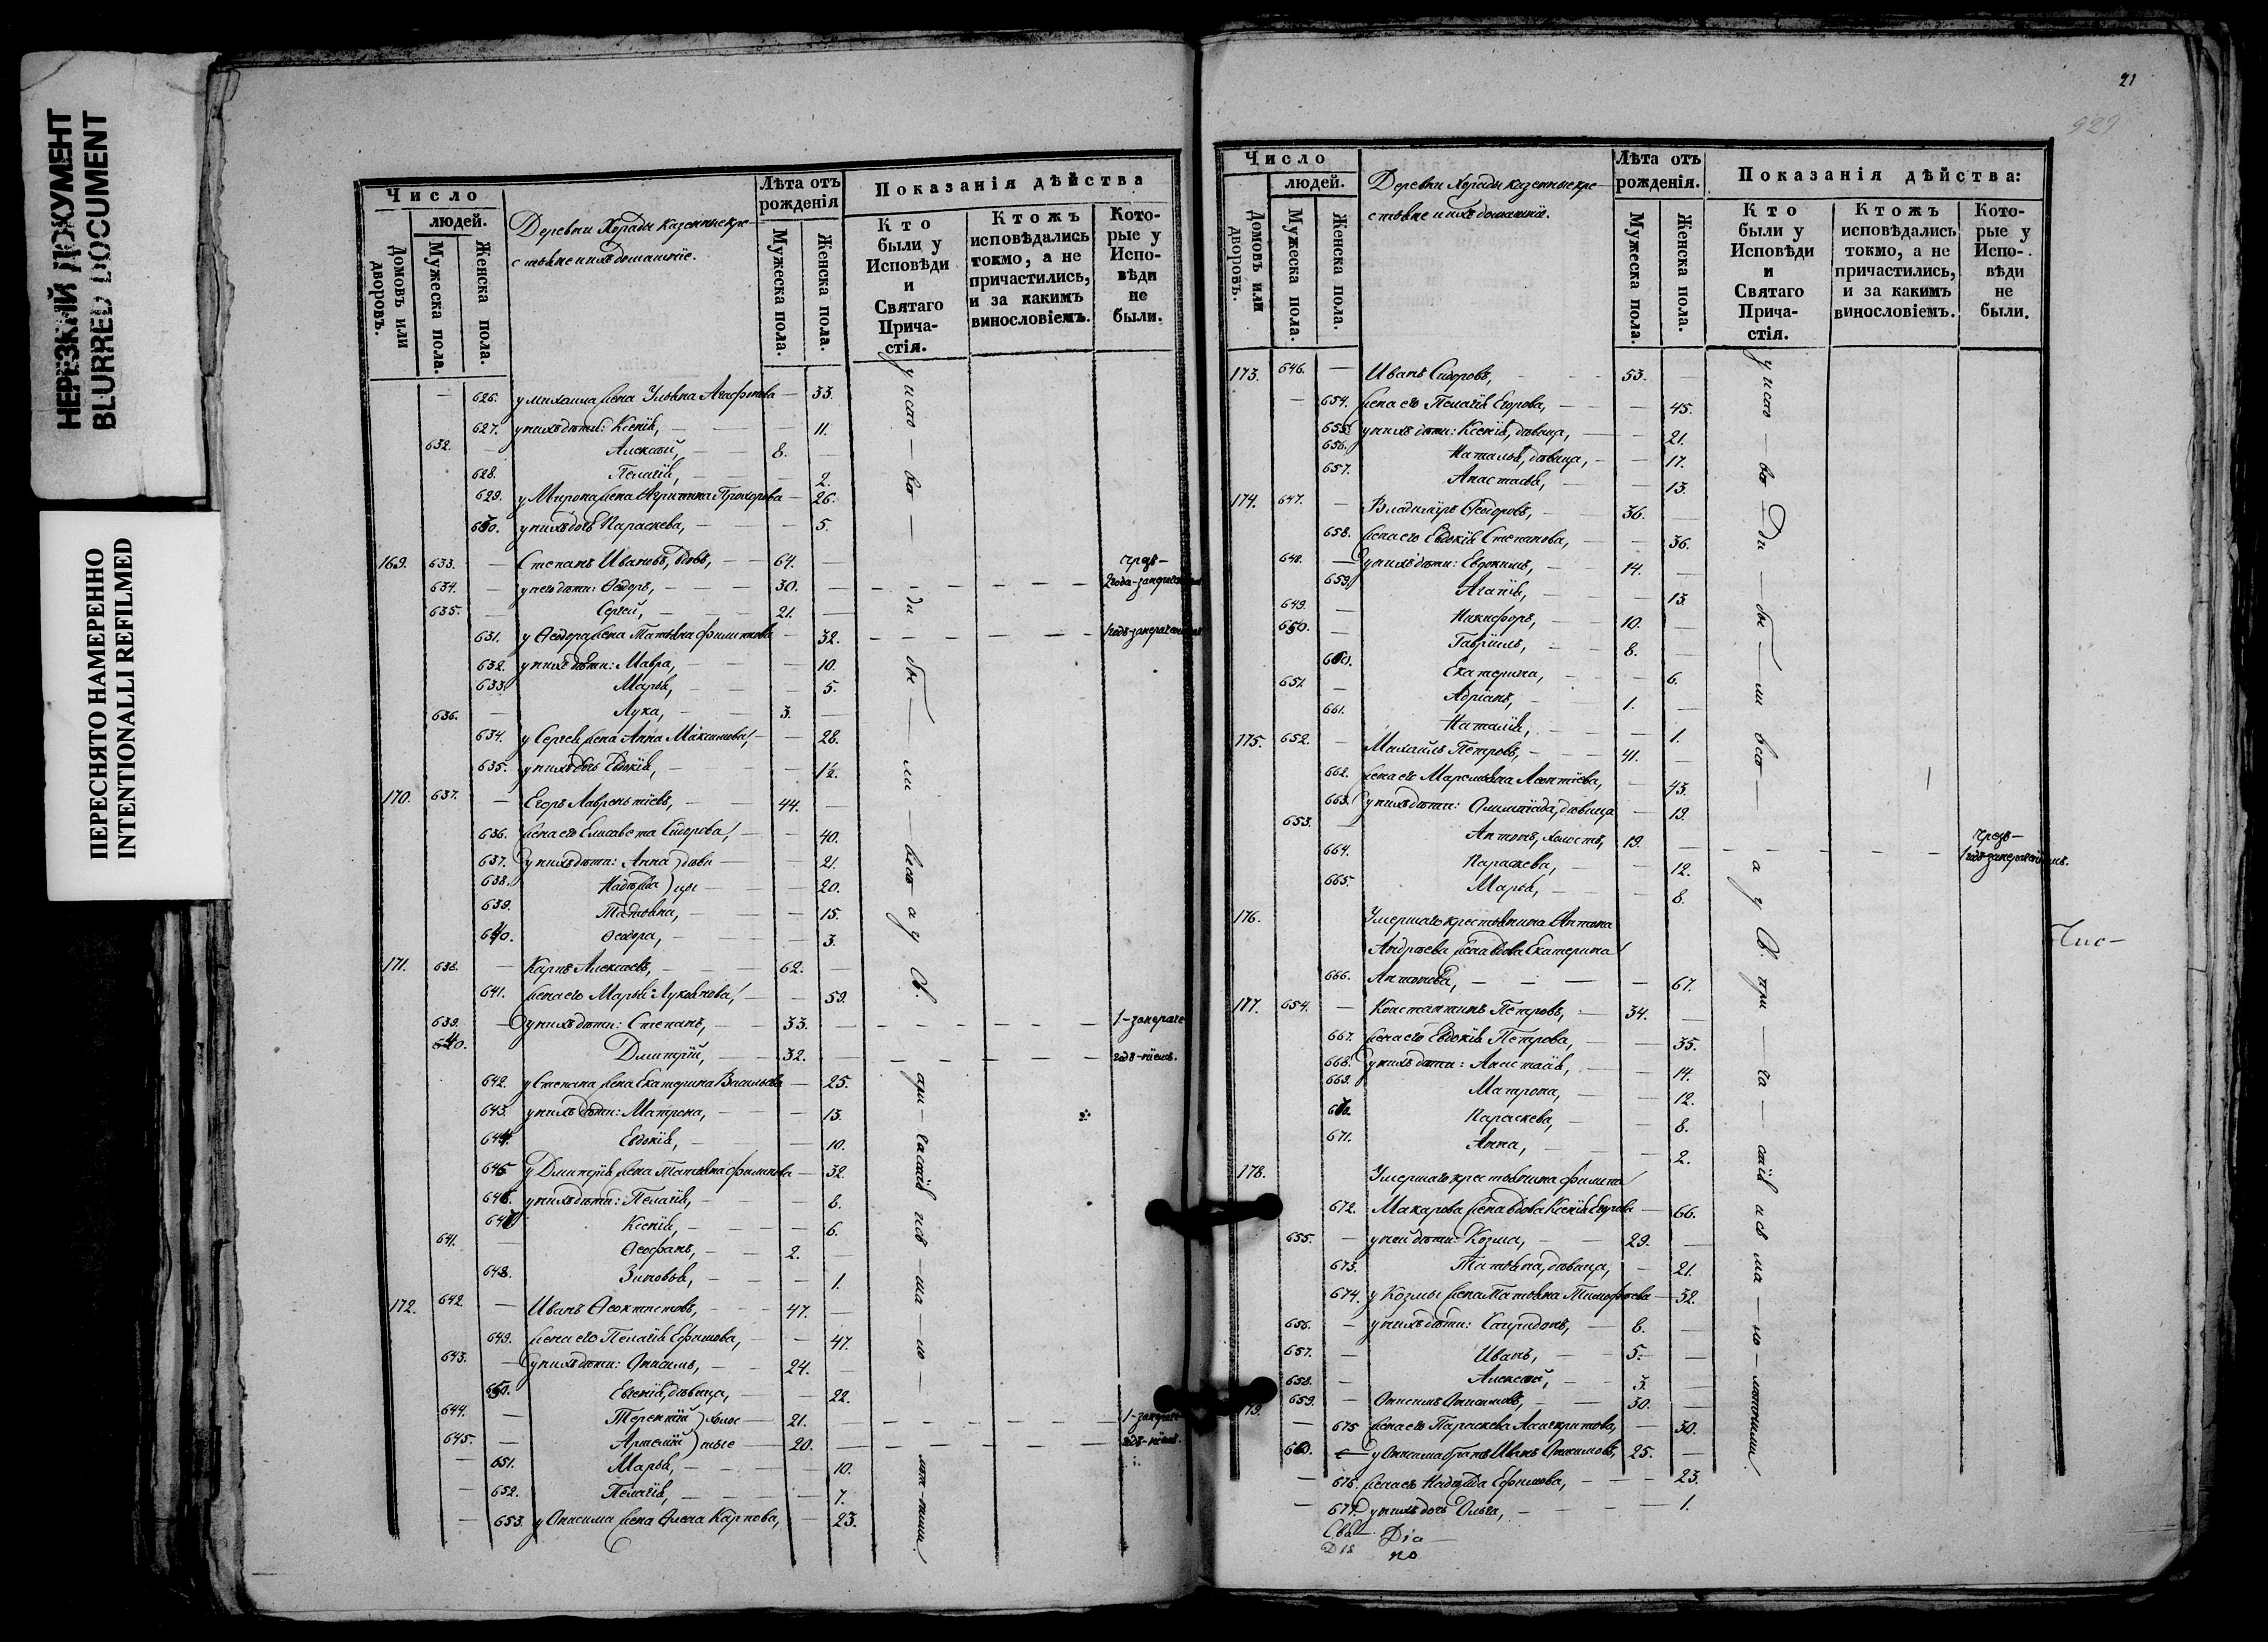 НЕРЕЗКИЙ ДОКУМЕНТ
BLURRED DOCUMENT
ПЕРЕСНЯТО НАМЕРЕННО
INTENTIONALLI REFILMED
Число
людей.
Домовъ или дворовъ.
Мужеска пола.
Женска пола.
Деревни казенные кре-
стьяне и ихъ домашніе.
Лѣта отъ рожденія
Мужеска пола.
Женска пола.
Показанія дѣйства
Кто были у Исповѣди и Святаго Прича-стія.
Ктожъ исповѣдались токмо, а не причастились, и за какимъ винословіемъ.
Кото-рые у Испо-вѣди не были.
— 626. у Михаила жена Ульяна Агафонова — 33.
627. у нихъ дѣти: Ксенія, — — 11.
632. — Алексѣй, — 8. —
628. Пелагія, — — 2.
629. у Мирона жена Прохорова — 26.
630. у нихъ дочь Параскева, — — 5.
169. 633. — Степанъ Ивановъ, вдовъ, — 64. —
634. — у него дѣти: Ѳедоръ, — 30. —
635. — Сергей, — 21. —
631. у Ѳедора жена Татьяна Филиппова — 32.
632. у нихъ дѣти: Мавра, — — 10.
633. Марья, — — 5.
636. — Лука, — 3. —
634. у Сергея жена Анна Максимова, — — 28.
635. у нихъ дочь Евдокія, — — 1½.
170. 637. — Егоръ Лаврентіевъ, — 44. —
636. жена его Елисавета Сидорова, — — 40.
637. у нихъ дѣти: Анна дѣви — — 21.
638. Надежда цы — — 20.
639. Татьяна, — — 15.
640. Ѳедора, — — 3.
171. 638. — Карпъ Алексѣевъ, — 62. —
641. жена его Марья Лукьянова, — — 59.
639. — у нихъ дѣти: Степанъ, — 33. —
640. Дмитрій, — 32. —
642. у Степана жена Екатерина Васильева — 25.
643. у нихъ дѣти: Матрона, — — 13.
644. Евдокія, — — 10.
645 у Дмитрія жена Татьяна Филипова — 32.
646. у нихъ дѣти: Пелагія, — — 8.
647 Ксенія, — — 6.
641. — Ѳеофанъ, — 2. —
648. Зиновья, — — 1.
172. 642. — Иванъ Ѳеоктистовъ, — 47. —
649. жена его Пелагія Ефимова, — — 47.
643. — у нихъ дѣти: Онисимъ, — 24. —
650. Евгенія, дѣвица, — — 22.
644. — Терентій холос — 21. —
645. — Арсеній тые — 20. —
— 651. Марья, — — 10.
— 652. Пелагія, — — 7.
— 653. у Онисима жена Карпова, — 23.
21
929
Число
людей.
Домовъ или дворовъ.
Мужеска пола.
Женска пола.
Деревни казенные кре-
стьяне и ихъ домашніе.
Лѣта отъ рожденія.
Мужеска пола.
Женска пола.
Показанія дѣйства:
Кто были у Исповѣди и Святаго Прича-стія.
Ктожъ исповѣдались токмо, а не причастились, и за какимъ винословіемъ.
Кото-рые у Испо-вѣди не были.
173. 646. — Иванъ Сидоровъ, — 53. —
— 654. жена его Пелагія Егорова, — — 45.
655. у нихъ дѣти: Ксенія, дѣвица, — — 21.
656. Наталья, дѣвица, — — 17.
657. Анастасья, — — 13.
174. 647. — Владиміръ Ѳедоровъ, — 36. —
658. жена его Евдокія Степанова, — — 36.
648. — у нихъ дѣти: Евдокимъ, — 14. —
659. Агапія, — — 13.
649. — Никифоръ, — 10. —
650. — Гавріилъ, — 8. —
660. Екатерина, — — 6.
651. — Адріанъ, — 1. —
661. Наталія, — — 1.
175. 652. — Михаилъ Петровъ, — 41. —
662. жена его Марѳа Леонтіева, — 43.
663. у нихъ дѣти: Олимпіада, дѣвица — 19.
653. — Антонъ, холостъ, 19. —
664. Параскева, — — 12.
665. Марья, — — 8.
176. Умершаго крестьянина Антона
Андреева жена вдова Екатерина
666. Антонова, — — — 67.
177. 654. — Константинъ Петровъ, — 34. —
667. жена его Евдокія Петрова, — — 35.
668. у нихъ дѣти: Анастасія, — — 14.
669. Матрона, — — 12.
670. Параскева, — — 8.
671. Анна, — — 2.
178. Умершаго крестьянина Филипа
672. Макарова жена вдова Ксенія Егорова — 66.
655. — у ней дѣти: Козма, — 29. —
673. Татьяна, дѣвица, — 21.
674. у Козмы жена Татьяна Тимофѣева — 32.
656. — у нихъ дѣти: Спиридонъ, — 8. —
657. — Иванъ, — 5. —
658. — Алексѣй, — 3. —
179. 659. — Онисимъ Онисимовъ, — 30. —
— 675 жена его Параскева — 30.
660. у Онисима братъ Иванъ Онисимовъ, 25. —
— 676. жена его Надежда Ефимова, — — 23.
— 677. у нихъ дочь Ольга, — — 1.
Чис-